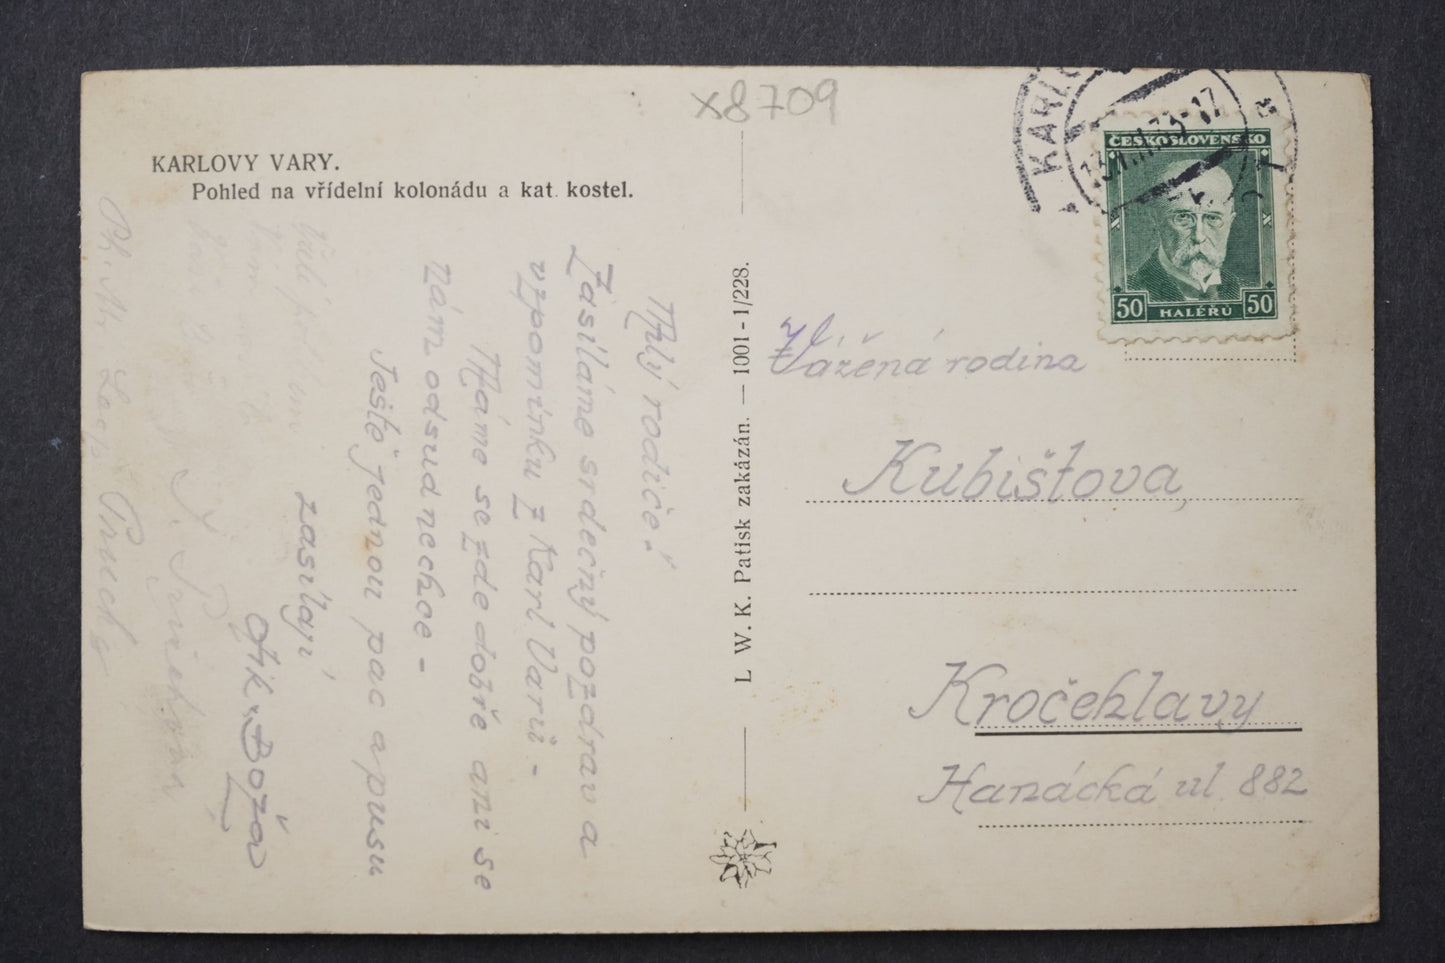 x8709
KARLOVY VARY.
Pohled na vřídelní kolonádu a kat. kostel.
Milý rodiče!
Zasíláme srdečný pozdrav a
vzpomínku z Karl Varů -
Máme se zde dobře ani se
nám odsud nechce -
Ještě jednou pac a pusu
zasílají
Boža
L. W. K. Patisk zakázán. — 1001 - 1/228.
KARLO
ČESKOSLOVENSKO
50 HALÉŘŮ 50
Vážená rodina
Kubištova,
Kročehlavy
Hanácká ul 882